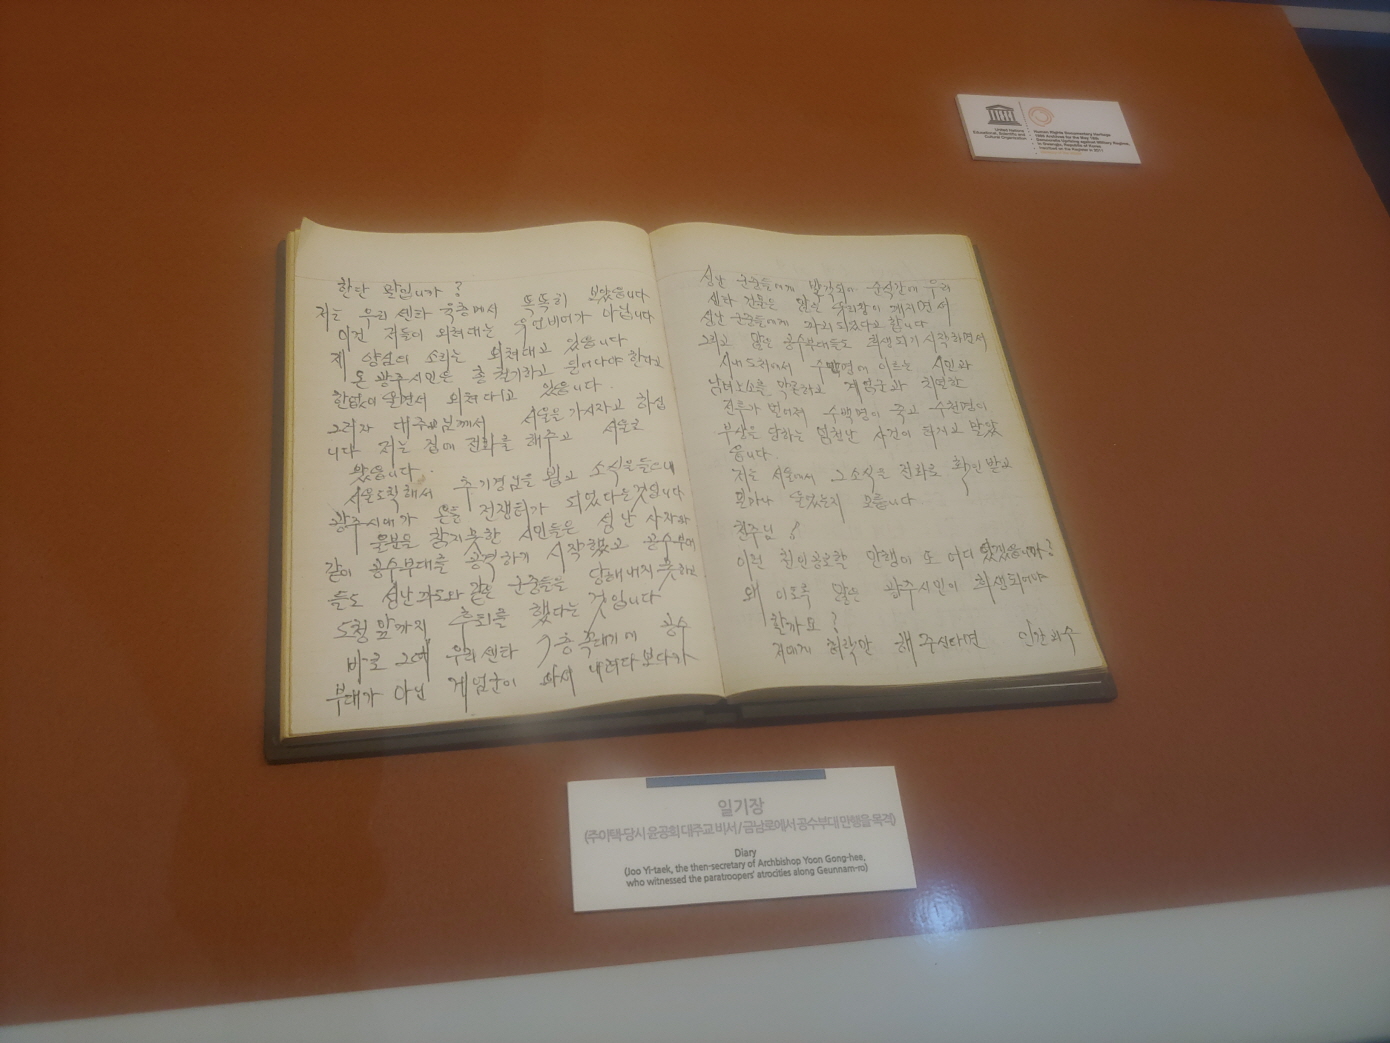 United Nations
Educational, Scientific and
Cultural Organization
Human Rights Documentary Heritage
1980 Archives for the May 18th
Democratic Uprising against Military Regime,
in Gwangju, Republic of Korea
Inscribed on the Register in 2011
한단 말입니까?
저는 우리 센타 육층에서 똑똑히 보았습니다
이건 저들이 외쳐대는 유언비어가 아닙니다
제 양심의 소리는 외쳐대고 있습니다
온 광주시민은 총 궐기하고 일어나야 한다고
한없이 울면서 외쳐대고 있습니다.
그러자 대주교님께서 서울을 가시자고 하십
니다 저는 집에 전화를 해주고 서울로
왔습니다.
서울도착해서 추기경님을 뵙고 소식을 들으니
광주시내가 온통 전쟁터가 되었다는것입니다
울분을 참지못한 시민들은 성난 사자와
같이 공수부대를 공격하기 시작했고 공수부대
들도 성난 파도와 같은 군중들을 당해내지 못하고
도청앞까지 후퇴를 했다는 것입니다
바로 그때 우리센타 층 꼭대기에 공수
부대가 아닌 계엄군이 와서 내려다보다가
성난 군중들에게 발각되어 순식간에 우리
센타 건물은 많은 유리창이 깨지면서
성난 군중들에게 파괴되었다고 합니다
그리고 많은 공수부대들도 희생되기시작하면서
시내도처에서 수백명에 이르는 시민과
남녀노소를 막론하고 계엄군과 치열한
전투가 벌어져 수백명이 죽고 수천명이
부상을 당하는 엄청난 사건이 터지고 말았
습니다.
저는 서울에서 그 소식을 전화로 확인받고
얼마나 울었는지 모릅니다
천주님!
이런 천인공로할 만행이 또 어디 있겠습니까?
왜 이토록 많은 광주시민이 희생되어야
할까요?
저에게 허락만 해주신다면 민간
일기장
(주이택·당시 윤공희 대주교 비서 / 금남로에서 공수부대 만행을 목격)
Diary
(Joo Yi-taek, the then-secretary of Archbishop Yoon Gong-hee,
who witnessed the paratroopers' atrocities along Geunnam-ro)